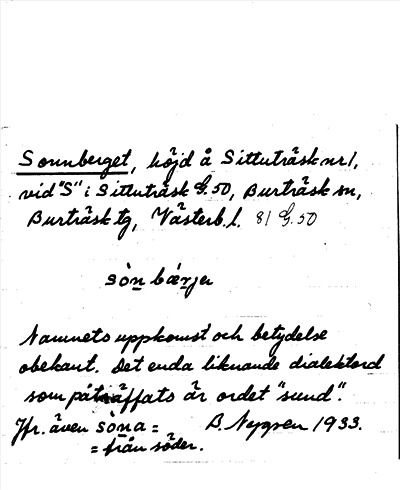 Sonnberget, höjd å Sittuträsk nr 1,
vid "S" i Sittuträsk G.50, Burträsk sn,
Burträsk tg, Västerb. l. 81 G.50
sòn bærje
Namnets uppkomst och betydelse
obekant. Det enda liknande dialektord
som påträffats är ordet "sund".
Jfr. även sòna = B. Nygren 1933.
= från söder.